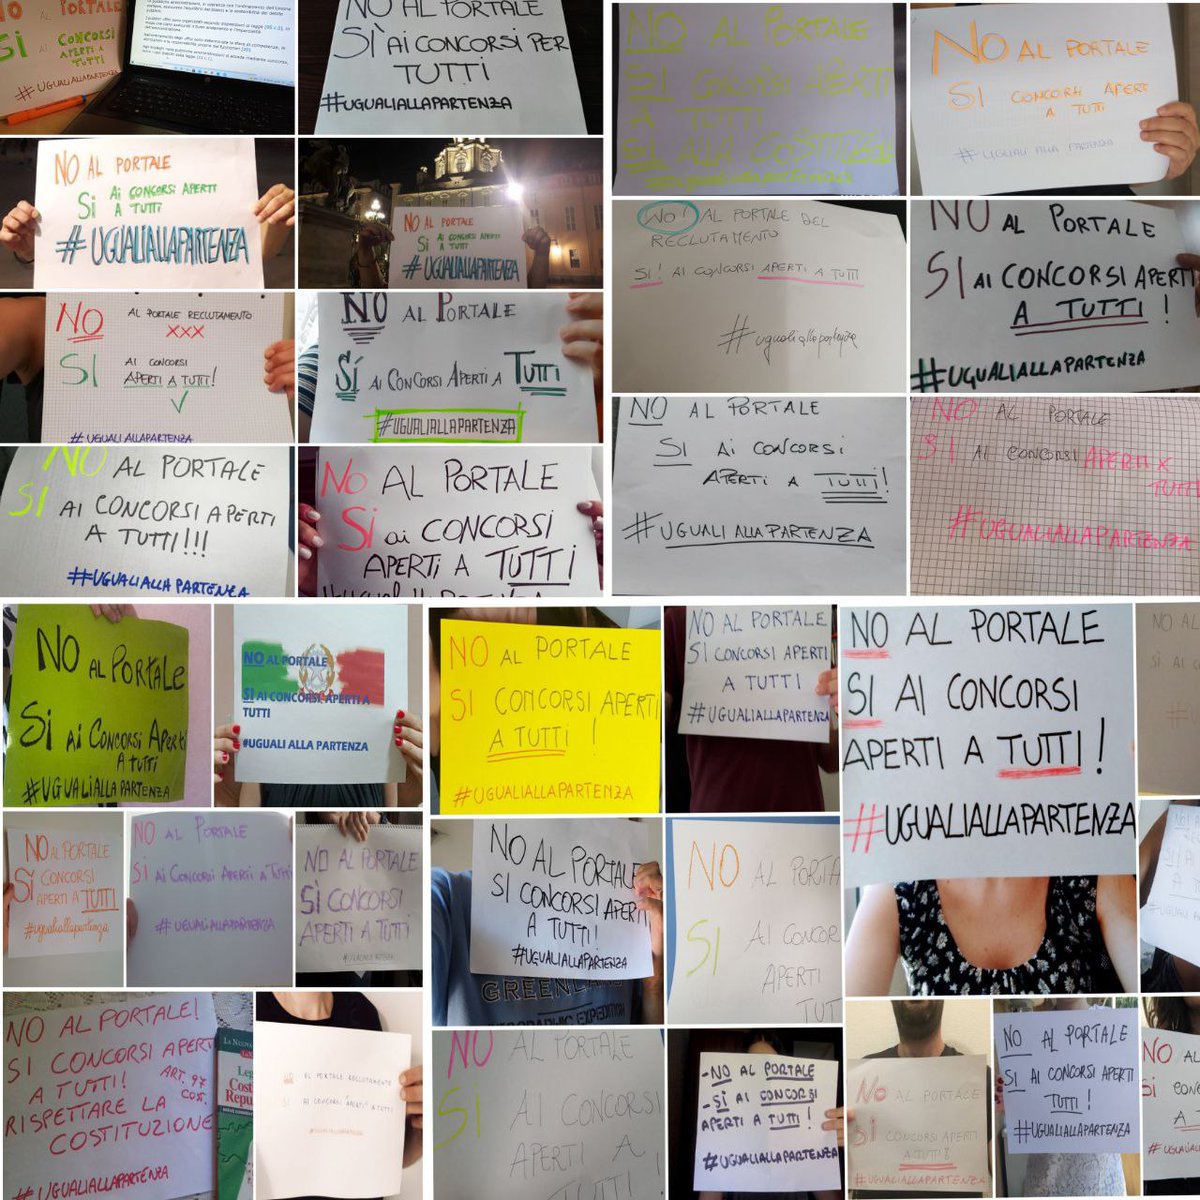 NO AL PORTALE
SI AI CONCORSI
APERTI A
TUTTI
#UGUALIALLAPARTENZA
NO AL PORTALE
SÌ AI CONCORSI PER
TUTTI
#UGUALIALLAPARTENZA
NO AL PORTALE
SI CONCORSI APERTI
A TUTTI
SI ALLA COSTITUZIONE
NO AL PORTALE
SI CONCORSI APERTI
A TUTTI
#UGUALI ALLA PARTENZA
NO AL PORTALE
Si Ai CONCORSI APERTI
A TUTTI
#UGUALIALLAPARTENZA
NO AL PORTALE
Si Ai CONCORSI APERTI
A TUTTI
#UGUALIALLAPARTENZA
NO! AL PORTALE DEL
RECLUTAMENTO
SI! AI CONCORSI APERTI A TUTTI
#ugualiallapartenza
NO AL PORTALE
SI AI CONCORSI APERTI
A TUTTI!
#UGUALIALLAPARTENZA
NO AL PORTALE RECLUTAMENTO
XXX
SI AI CONCORSI
APERTI A TUTTI!
#UGUALIALLAPARTENZA
NO AL PORTALE
Sí AI CONCORSI APERTI A TUTTI
#UGUALIALLAPARTENZA
NO AL PORTALE
SI Ai CONCORSI
APERTI A TUTTI!
#UGUALI ALLA PARTENZA
NO AL PORTALE
SI AI CONCORSI APERTI X
TUTTI
#UGUALIALLAPARTENZA
NO AL PORTALE
SI AI CONCORSI APERTI
A TUTTI!!!
#UGUALIALLAPARTENZA
NO AL PORTALE
Si ai CONCORSI
APERTI A TUTTI
NO AL PORTALE
Si Ai CONCORSI APERTI
A TUTTI
#UGUALIALLAPARTENZA
NO AL PORTALE
SI AI CONCORSI APERTI A
TUTTI
#UGUALI ALLA PARTENZA
NO AL PORTALE
SI CONCORSI APERTI
A TUTTI!
#UGUALIALLAPARTENZA
NO AL PORTALE
SI CONCORSI APERTI
A TUTTI
#UGUALIALLAPARTENZA
NO AL PORTALE
SI AI CONCORSI
APERTI A TUTTI!
#UGUALIALLAPARTENZA
NO AL
NO AL PORTALE
SÌ CONCORSI
APERTI A TUTTI
#ugualiallapartenza
NO AL PORTALE
SI Ai CONCORSI APERTI A TUTTI
#UGUALIALLAPARTENZA
NO AL PORTALE
SÌ CONCORSI
APERTI A TUTTI
NO AL PORTALE
SI CONCORSI APERTI
A TUTTI!
#UGUALIALLAPARTENZA
GREENLAND
EXPEDITION
NO AL
SI AI
APERTI
NO AL PORTALE!
SI CONCORSI APERTI
A TUTTI! ART. 97
COST.
RISPETTARE LA
COSTITUZIONE
#UGUALIALLAPARTENZA
NO AL PORTALE RECLUTAMENTO
SI AI CONCORSI APERTI A TUTTI
NO AL PORTALE
Si AI CONCORSI
APERTI A
TUTTI!
-NO AL PORTALE
-SÌ AI CONCORSI
APERTI A TUTTI!
#UGUALIALLAPARTENZA
NO AL PORTALE
SI CONCORSI APERTI
A TUTTI!
#UGUALIALLAPARTENZA
NO AL PORTALE
SI AI CONCORSI APERTI
TUTTI!
#UGUALIALLAPARTENZA
NO AL
SI